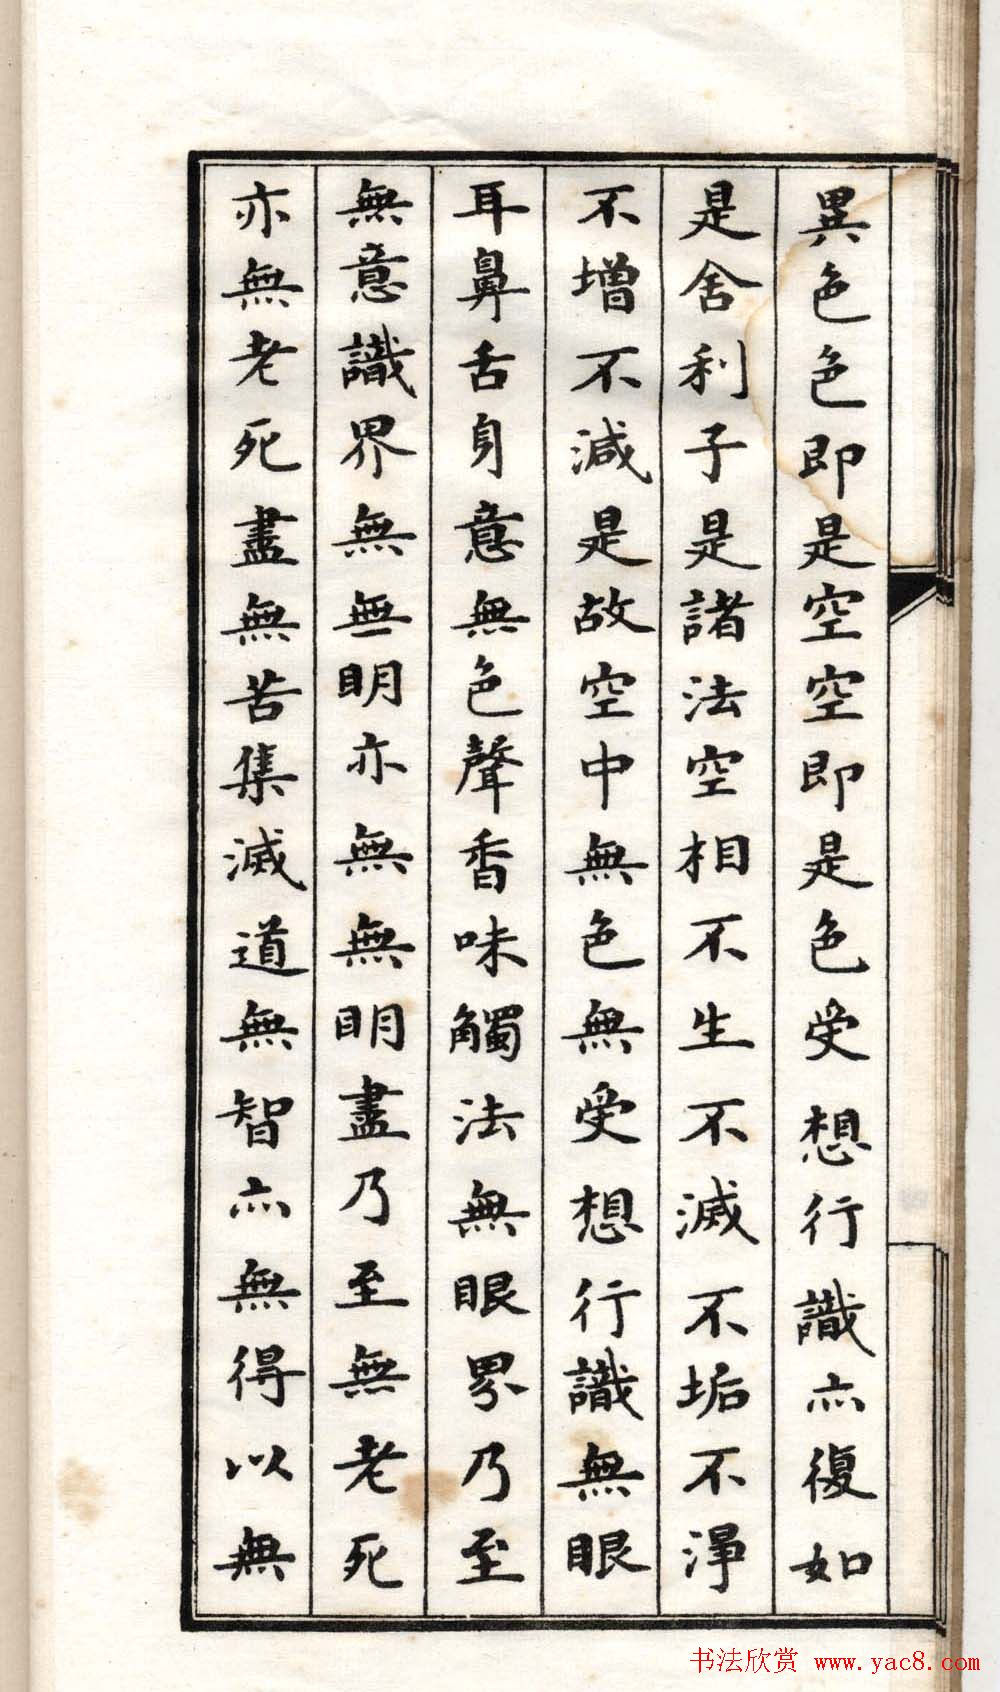 異色色即是空空即是色受想行識亦復如
是舍利子是諸法空相不生不滅不垢不淨
不增不減是故空中無色無受想行識無眼
耳鼻舌身意無色聲香味觸法無眼界乃至
無意識界無無明亦無無明盡乃至無老死
亦無老死盡無苦集滅道無智亦無得以無
书法欣赏 www.yac8.com